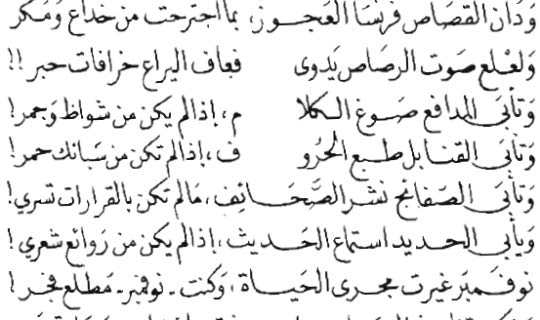 وَدَان القصَاص فرنسَا العَجـــوز، بما اجترحت من خداع وَمَكر
وَلعْلع صَوت الرصَاص يَدوى فعاف اليراع خرافات حبر !!
وَتأبَى المدافع صَــوغ الـــكلا م، إذا لم يكن من شواظ وَجمر!
وَتأبَى القنابل طبـــع الحُرُو ف، إذا لم تكن من سَبائك حمر!
وَتأبَى الصَفائح نشر الصَّحَـــائِف، مَا لم تكن بالقرارات تسري!
وَيأبى الحـديد استماع الحَـديث، إذا لم يكن من رَوائع شعري !
نوفــمبَر غيرت مجرى الحَيــاة، وَكنت - نوفمبر - مَطلع فجر !